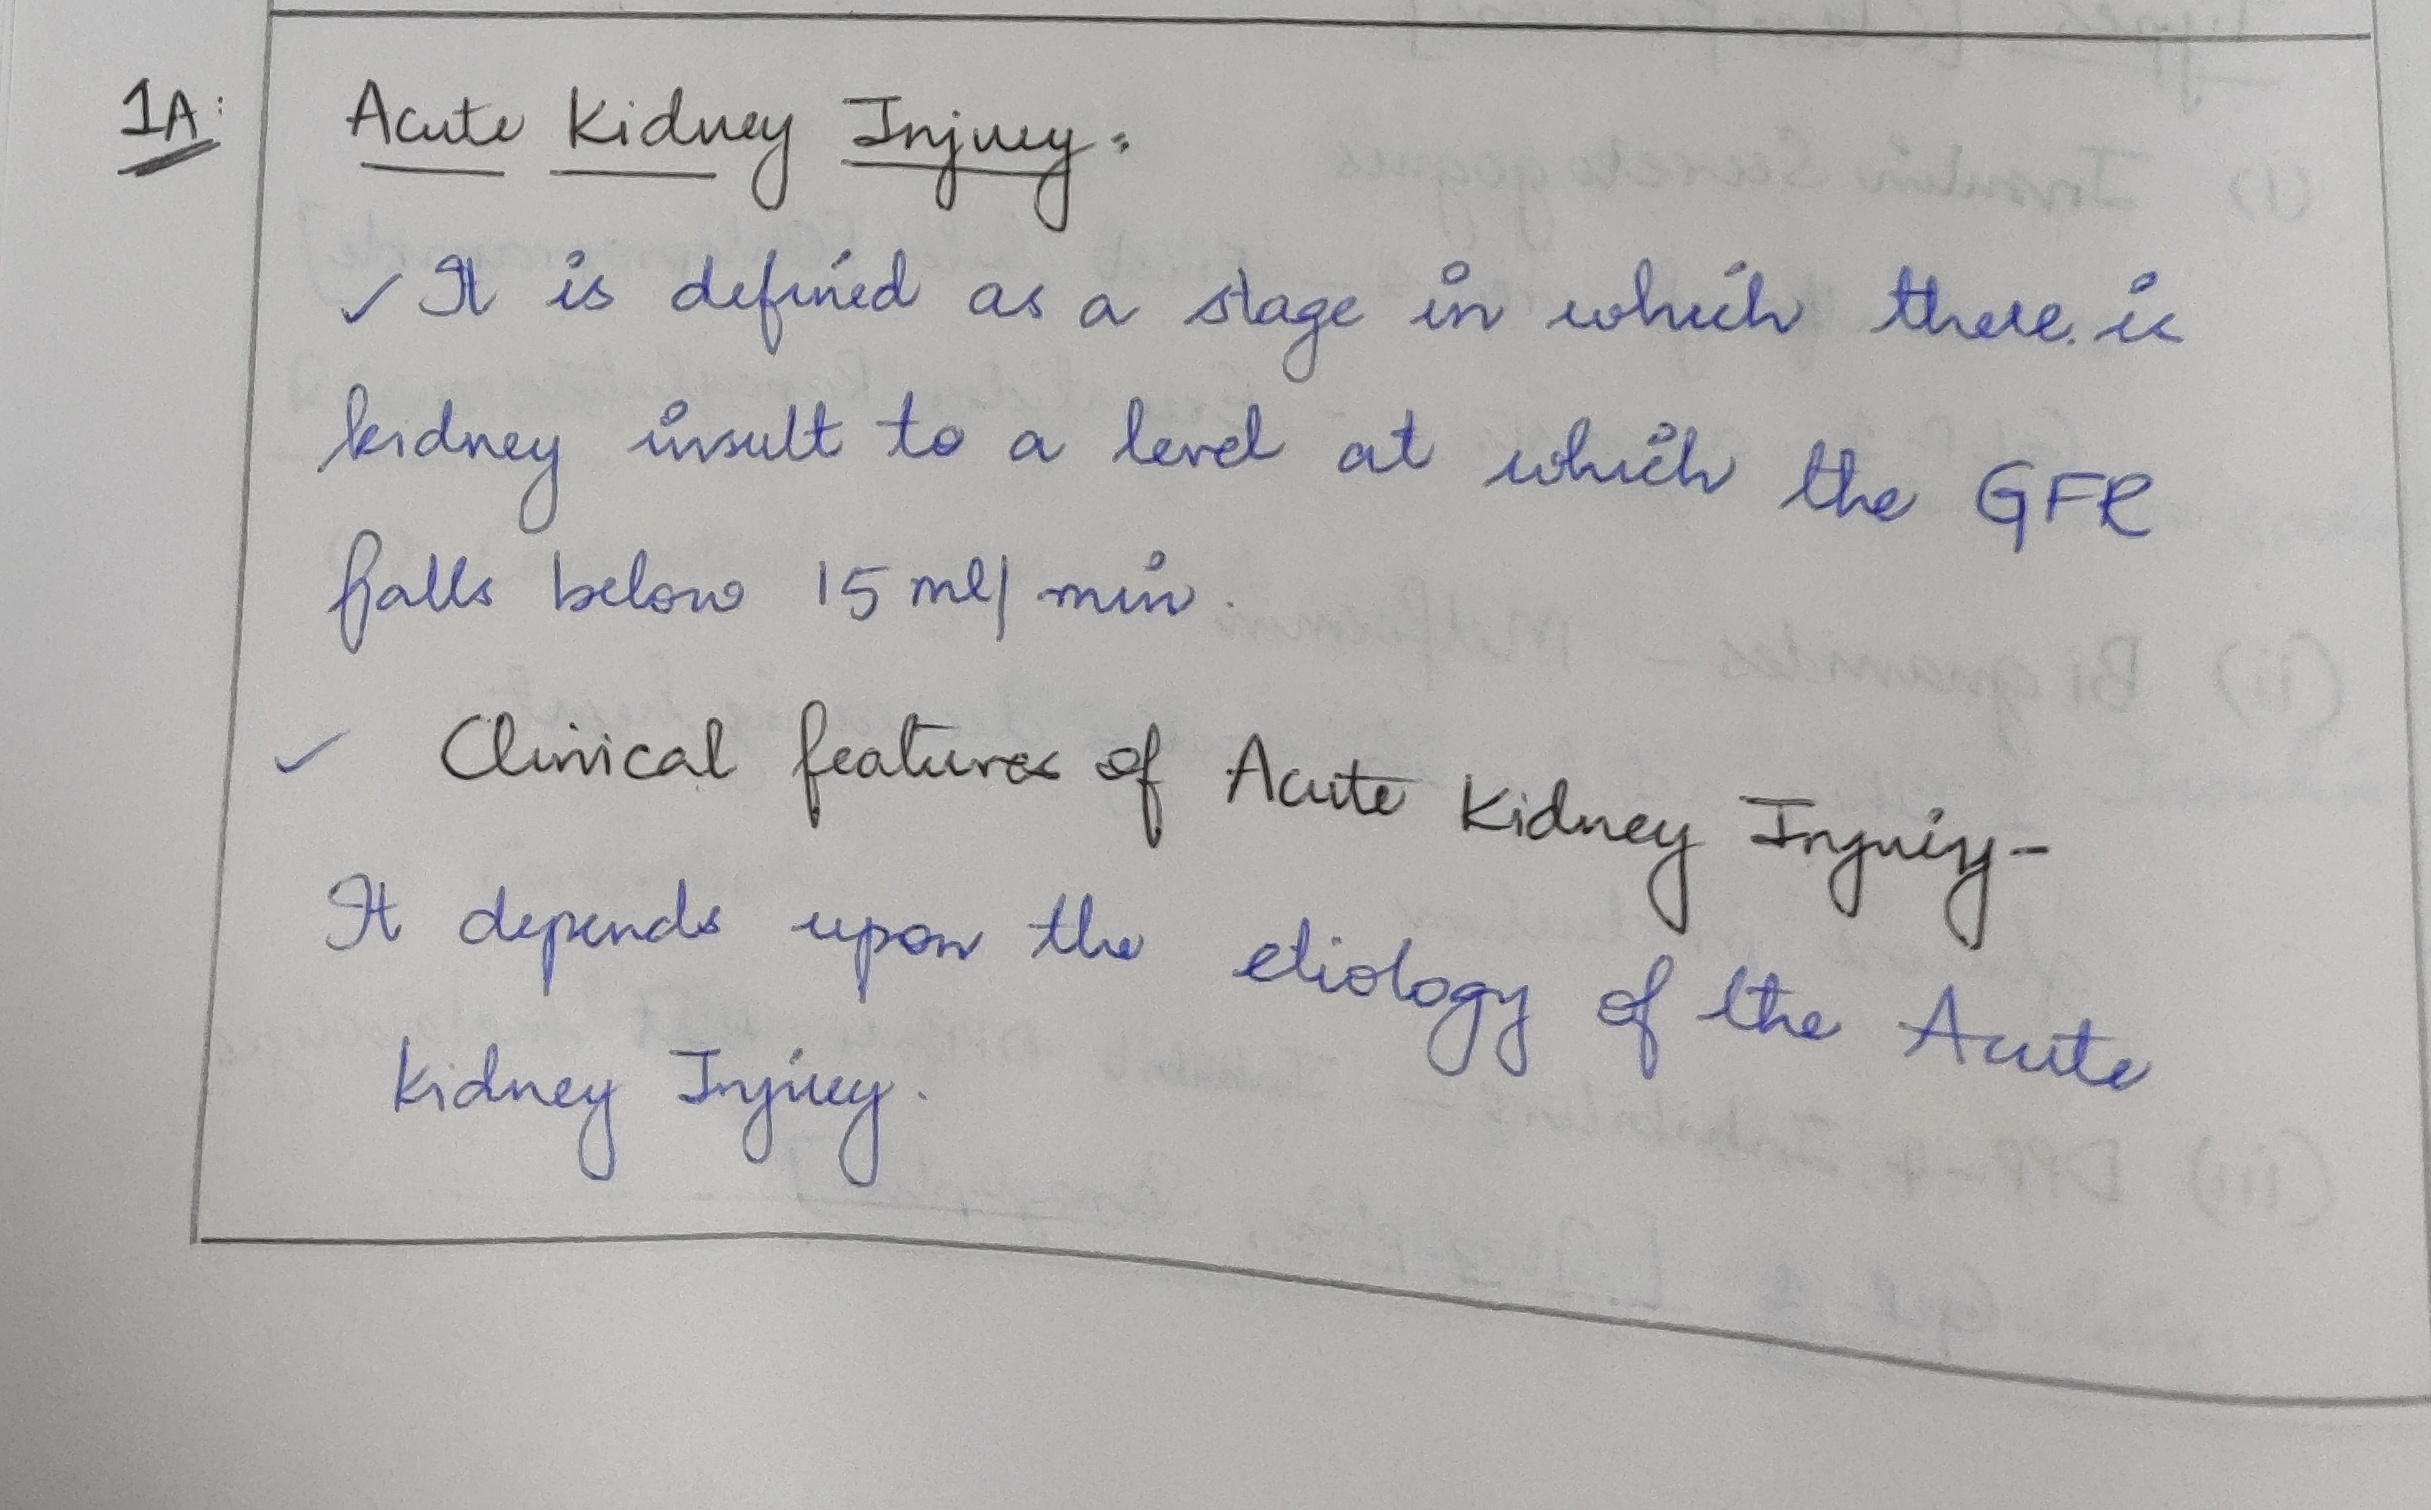 1A:
Acute Kidney Injury:
✓ It is defined as a stage in which there is
kidney insult to a level at which the GFR
falls below 15 ml/min.
✓ Clinical features of Acute Kidney Injury-
It depends upon the etiology of the Acute
Kidney Injury.